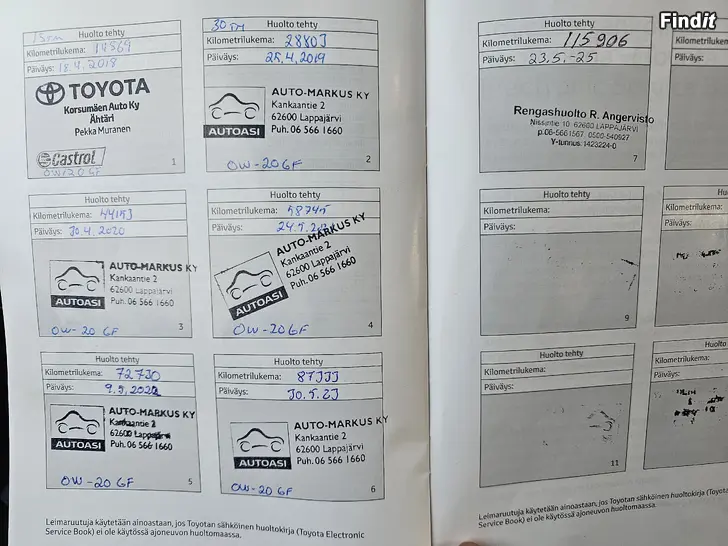 Findit
Huolto tehty
15tm
Kilometrilukema: 14569
Päiväys: 18.4.2018
TOYOTA
Korsumäen Auto Ky
Ähtäri
Pekka Muranen
Castrol
0W20 GF
1
Huolto tehty
30 tm
Kilometrilukema: 28803
Päiväys: 25.4.2019
AUTO-MARKUS KY
Kankaantie 2
62600 Lappajärvi
Puh. 06 566 1660
AUTOASI
0W-20 GF
2
Huolto tehty
Kilometrilukema: 44153
Päiväys: 30.4.2020
AUTO-MARKUS KY
Kankaantie 2
62600 Lappajärvi
Puh. 06 566 1660
AUTOASI
0W-20 GF
3
Huolto tehty
Kilometrilukema: 58745
Päiväys: 24.5.
AUTO-MARKUS KY
Kankaantie 2
62600 Lappajärvi
Puh. 06 566 1660
AUTOASI
0W-20 GF
4
Huolto tehty
Kilometrilukema: 72730
Päiväys: 9.5.2022
AUTO-MARKUS KY
Kankaantie 2
62600 Lappajärvi
Puh. 06 566 1660
AUTOASI
0W-20 GF
5
Huolto tehty
Kilometrilukema: 87333
Päiväys: 30.5.23
AUTO-MARKUS KY
Kankaantie 2
62600 Lappajärvi
Puh. 06 566 1660
AUTOASI
0W-20 GF
6
Leimaruutuja käytetään ainoastaan, jos Toyotan sähköinen huoltokirja (Toyota Electronic
Service Book) ei ole käytössä ajoneuvon huoltomaassa.
Huolto tehty
Kilometrilukema: 115906
Päiväys: 23.5.-25
Rengashuolto R. Angervisto
Nissintie 10 62600 LAPPAJÄRVI
p.06-5661567 0500-540927
Y-tunnus 1423224-0
7
Kilometrilukem
Päiväys:
Huolto tehty
Kilometrilukema:
Päiväys:
9
Kilometriluk
Päiväys:
Huolto tehty
Kilometrilukema:
Päiväys:
11
Kilometriluk
Päiväys:
Leimaruutuja käytetään ainoastaan, jos Toyotan sähköinen huoltokirja (Toyota
Service Book) ei ole käytössä ajoneuvon huoltomaassa.